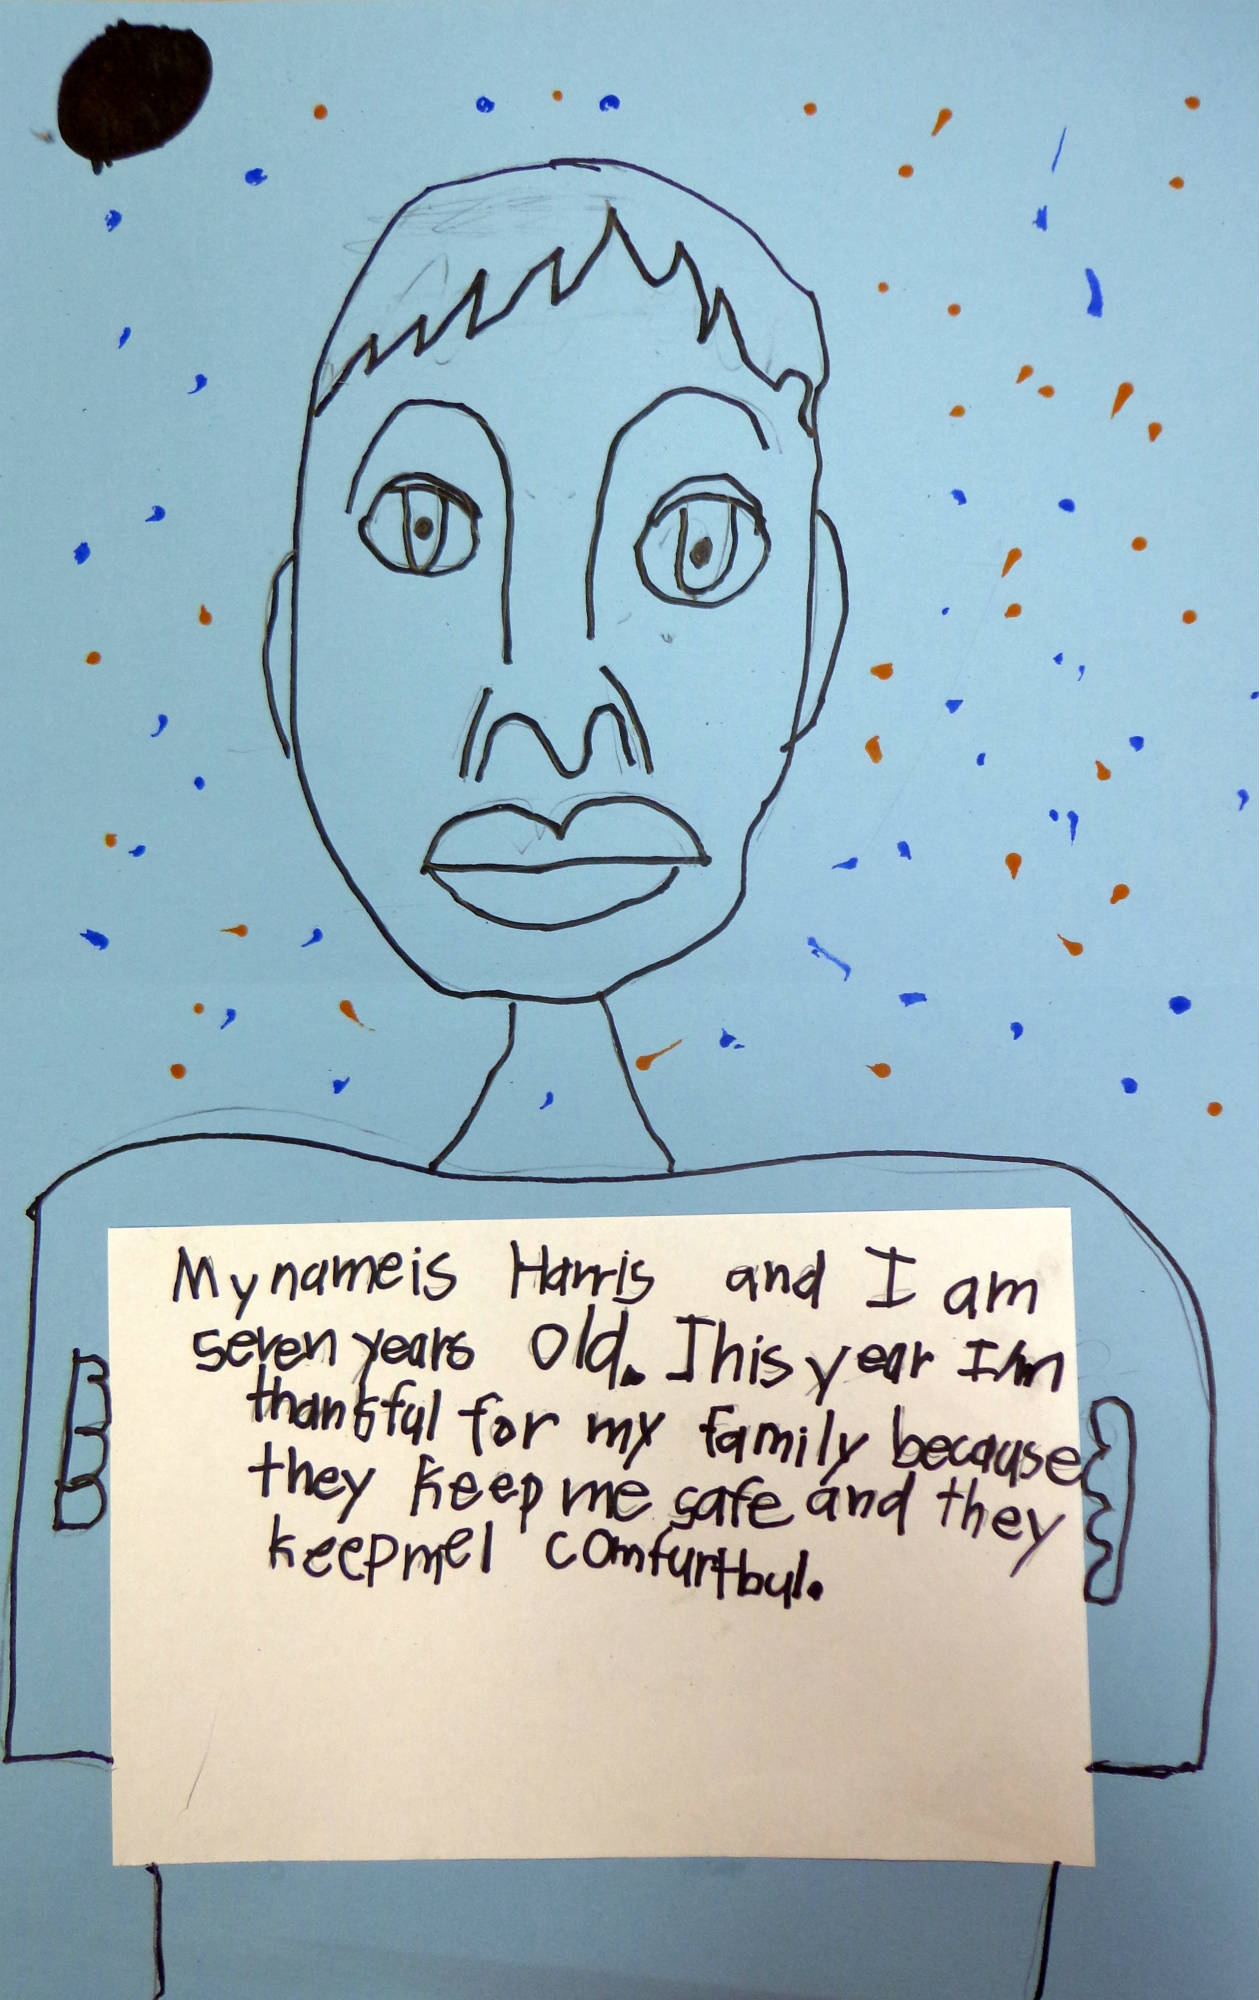 My name is Harris and I am
seven years old. This year I'm
thankful for my family because
they keep me safe and they
keep me comfurtbul.